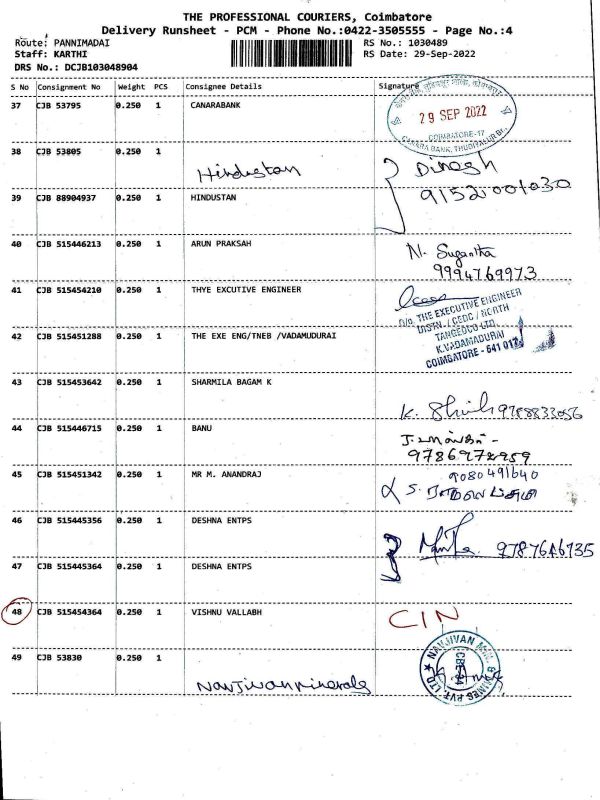 THE PROFESSIONAL COURIERS, Coimbatore
Delivery Runsheet - PCM - Phone No.:0422-3505555 - Page No.:4
Route: PANNIMADAI RS No.: 1030489
Staff: KARTHI RS Date: 29-Sep-2022
DRS No.: DCJB103048904
S No Consignment No Weight PCS Consignee Details Signature
37 CJB 53795 0.250 1 CANARABANK
29 SEP 2022
COIMBATORE-17
CANARA BANK, THUDIYALUR Br.
38 CJB 53805 0.250 1 Hindustan Dinesh
9152001030
39 CJB 88904937 0.250 1 HINDUSTAN
40 CJB 515446213 0.250 1 ARUN PRAKSAH N. Sugantha
9994769973
41 CJB 515454210 0.250 1 THYE EXCUTIVE ENGINEER
O/o. THE EXECUTIVE ENGINEER
DISTN. / CEDC / NORTH
TANGEDCO LTD.
K.VADAMADURAI
COIMBATORE - 641 017.
42 CJB 515451288 0.250 1 THE EXE ENG/TNEB /VADAMUDURAI
43 CJB 515453642 0.250 1 SHARMILA BAGAM K
K. 9788833056
44 CJB 515446715 0.250 1 BANU
45 CJB 515451342 0.250 1 MR M. ANANDRAJ 9080491640
46 CJB 515445356 0.250 1 DESHNA ENTPS
9787646735
47 CJB 515445364 0.250 1 DESHNA ENTPS
48 CJB 515454364 0.250 1 VISHNU VALLABH CIN
49 CJB 53830 0.250 1
Navjivan minerals